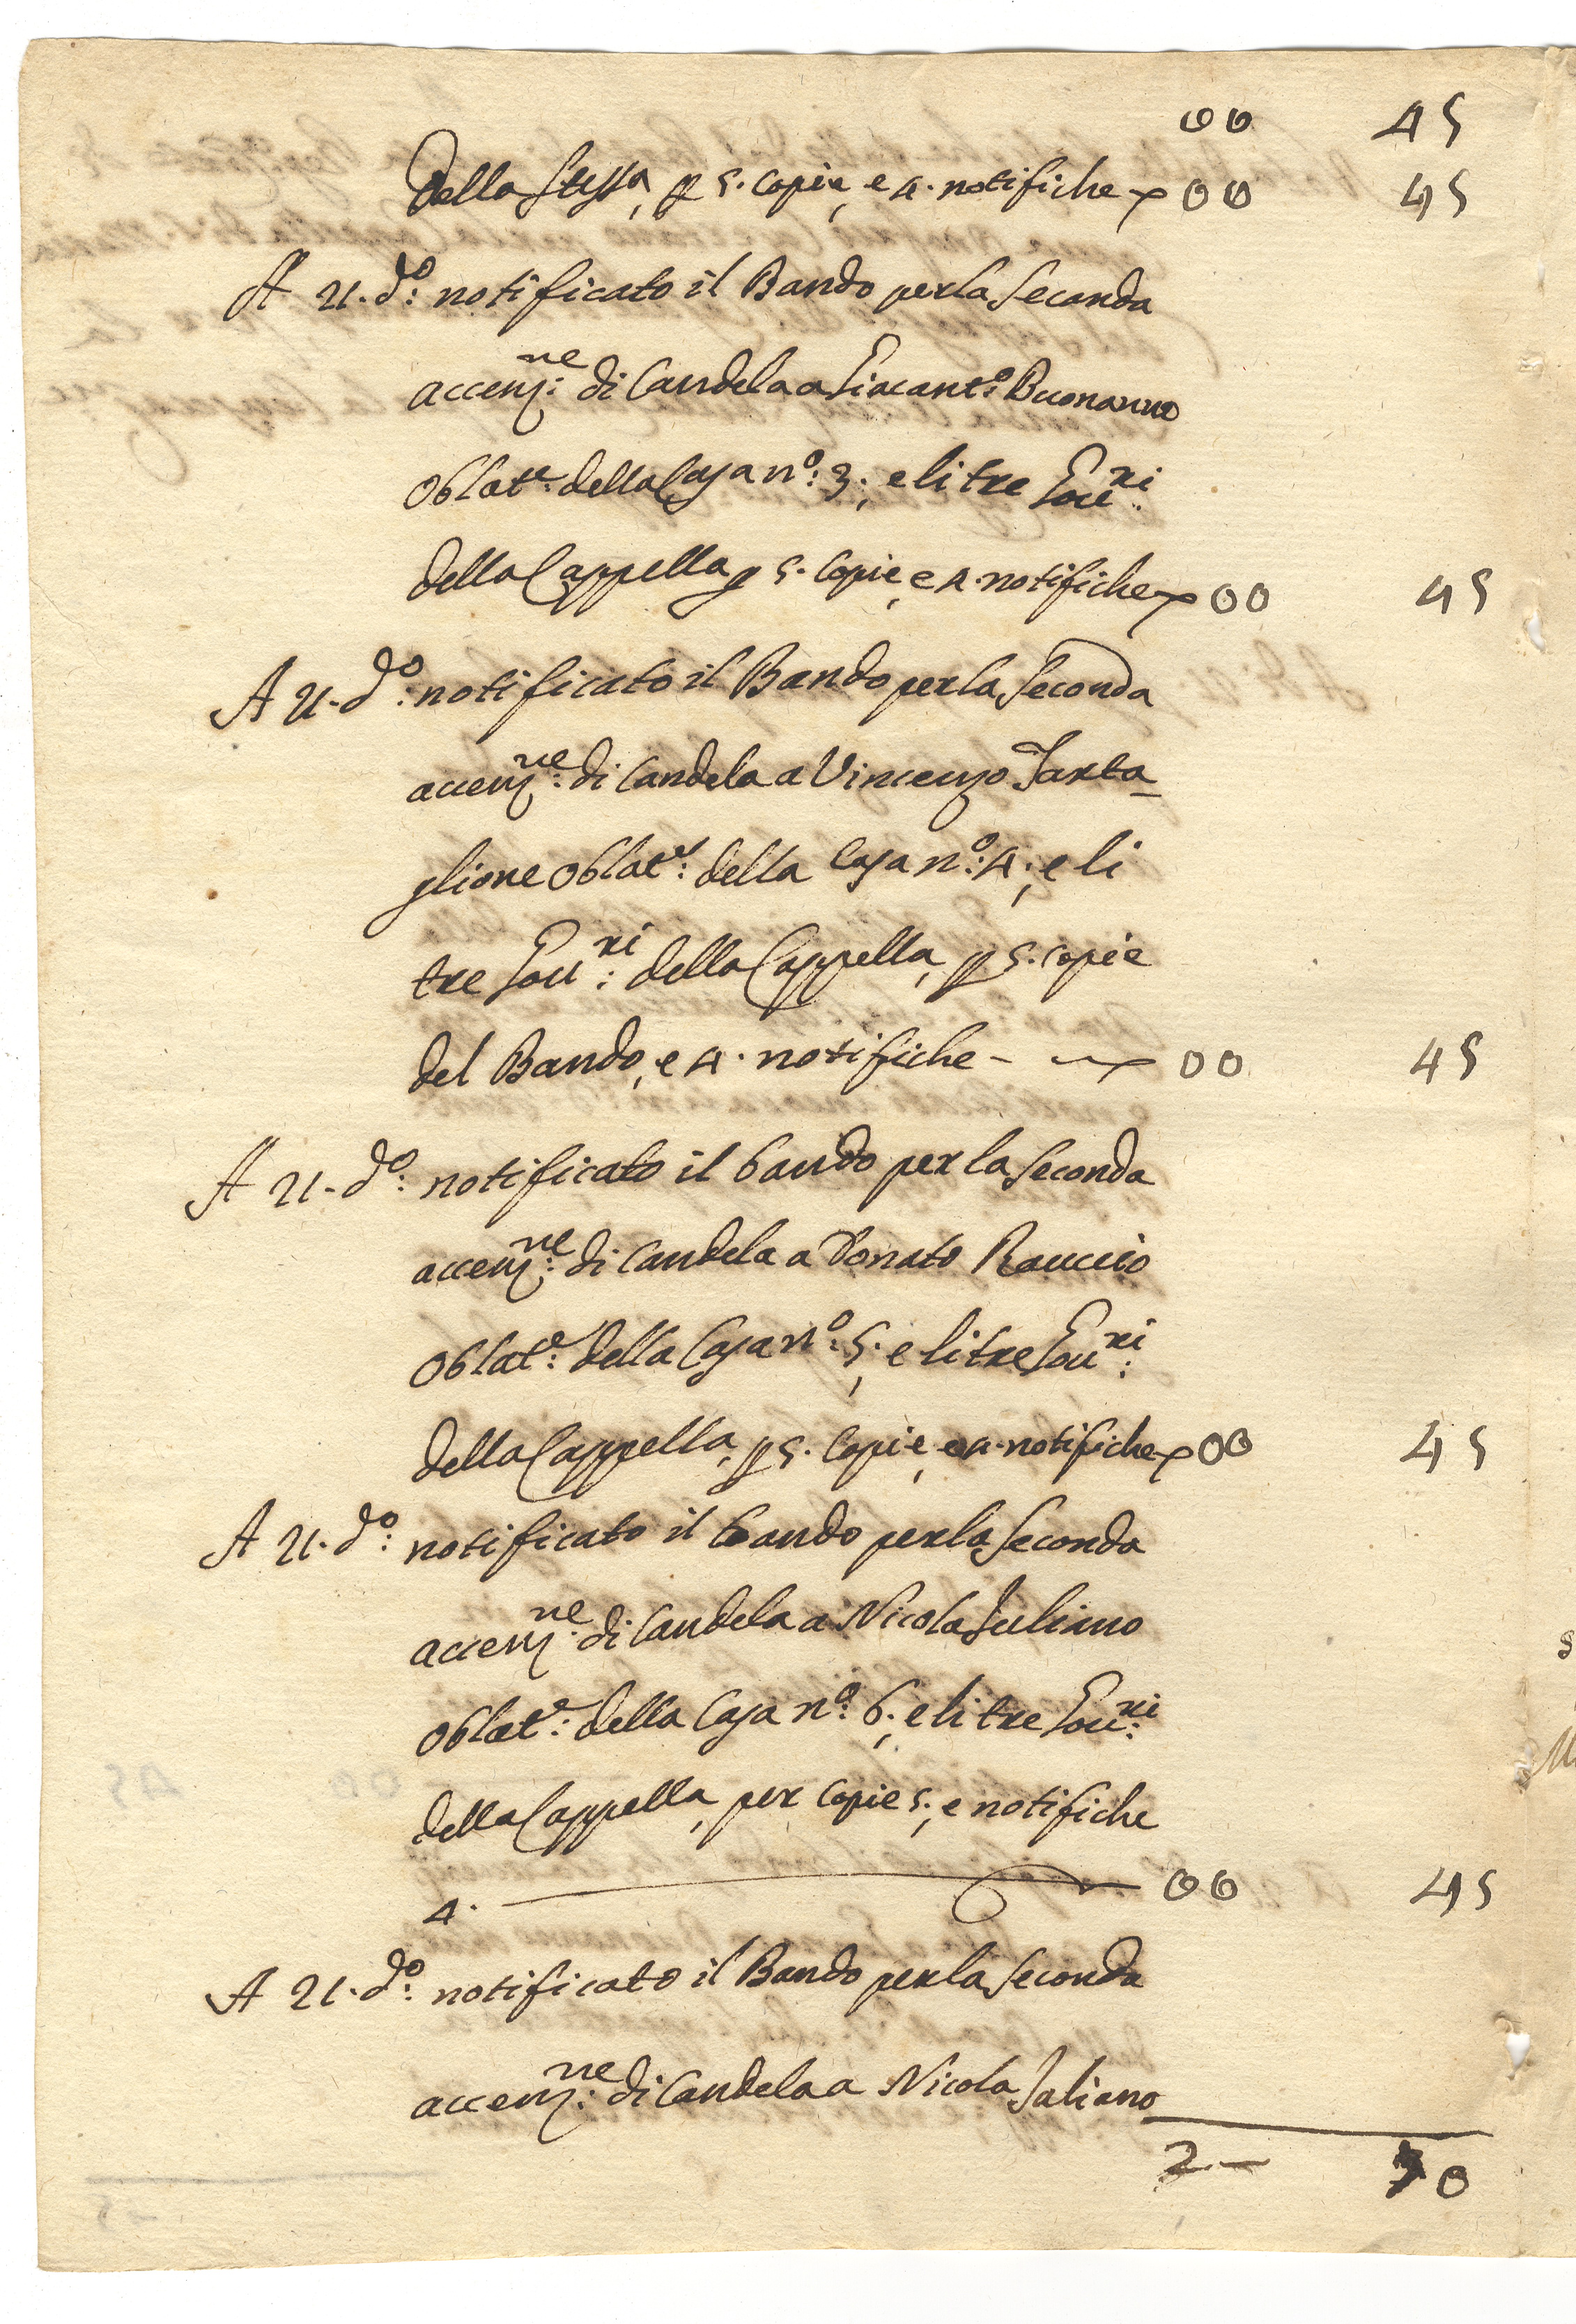 00 45
della stessa, p 5. copie, e 4. notifiche 00 45
A 21. do: notificato il Bando per la seconda
accenz.ne: di Candela a Giacant.o: Buonanno
Oblat.e: della Casa n.o: 3:, e li tre Gou.ri:
della Cappella p 5. Copie, e 4. notifiche 00 45
A 21. do: notificato il Bando per la Seconda
accenz.ne: di Candela a Vincenzo Tarta-
glione Oblat.e: della Casa n.o: 4:, e li
tre Gou.ri: della Cappella, p 5. copie
del Bando, e 4. notifiche - 00 45
A 21. do: notificato il bando per la seconda
accenz.ne: di Candela a Donato Rauccio
Oblat.e: della Casa n.o: 5:, e li tre Gou.ri:
della Cappella, p 5. Copie, e 4. notifiche 00 45
A 21. do: notificato il bando per la seconda
accenz.ne: di Candela a Nicola Iuliano
oblat.e: della Casa n.o: 6:, e li tre Gou.ri:
della Cappella, per copie 5:, e notifiche
4. 00 45
A 21. do: notificato il Bando per la Seconda
accenz.ne: di Candela a Nicola Iuliano
2.— 70